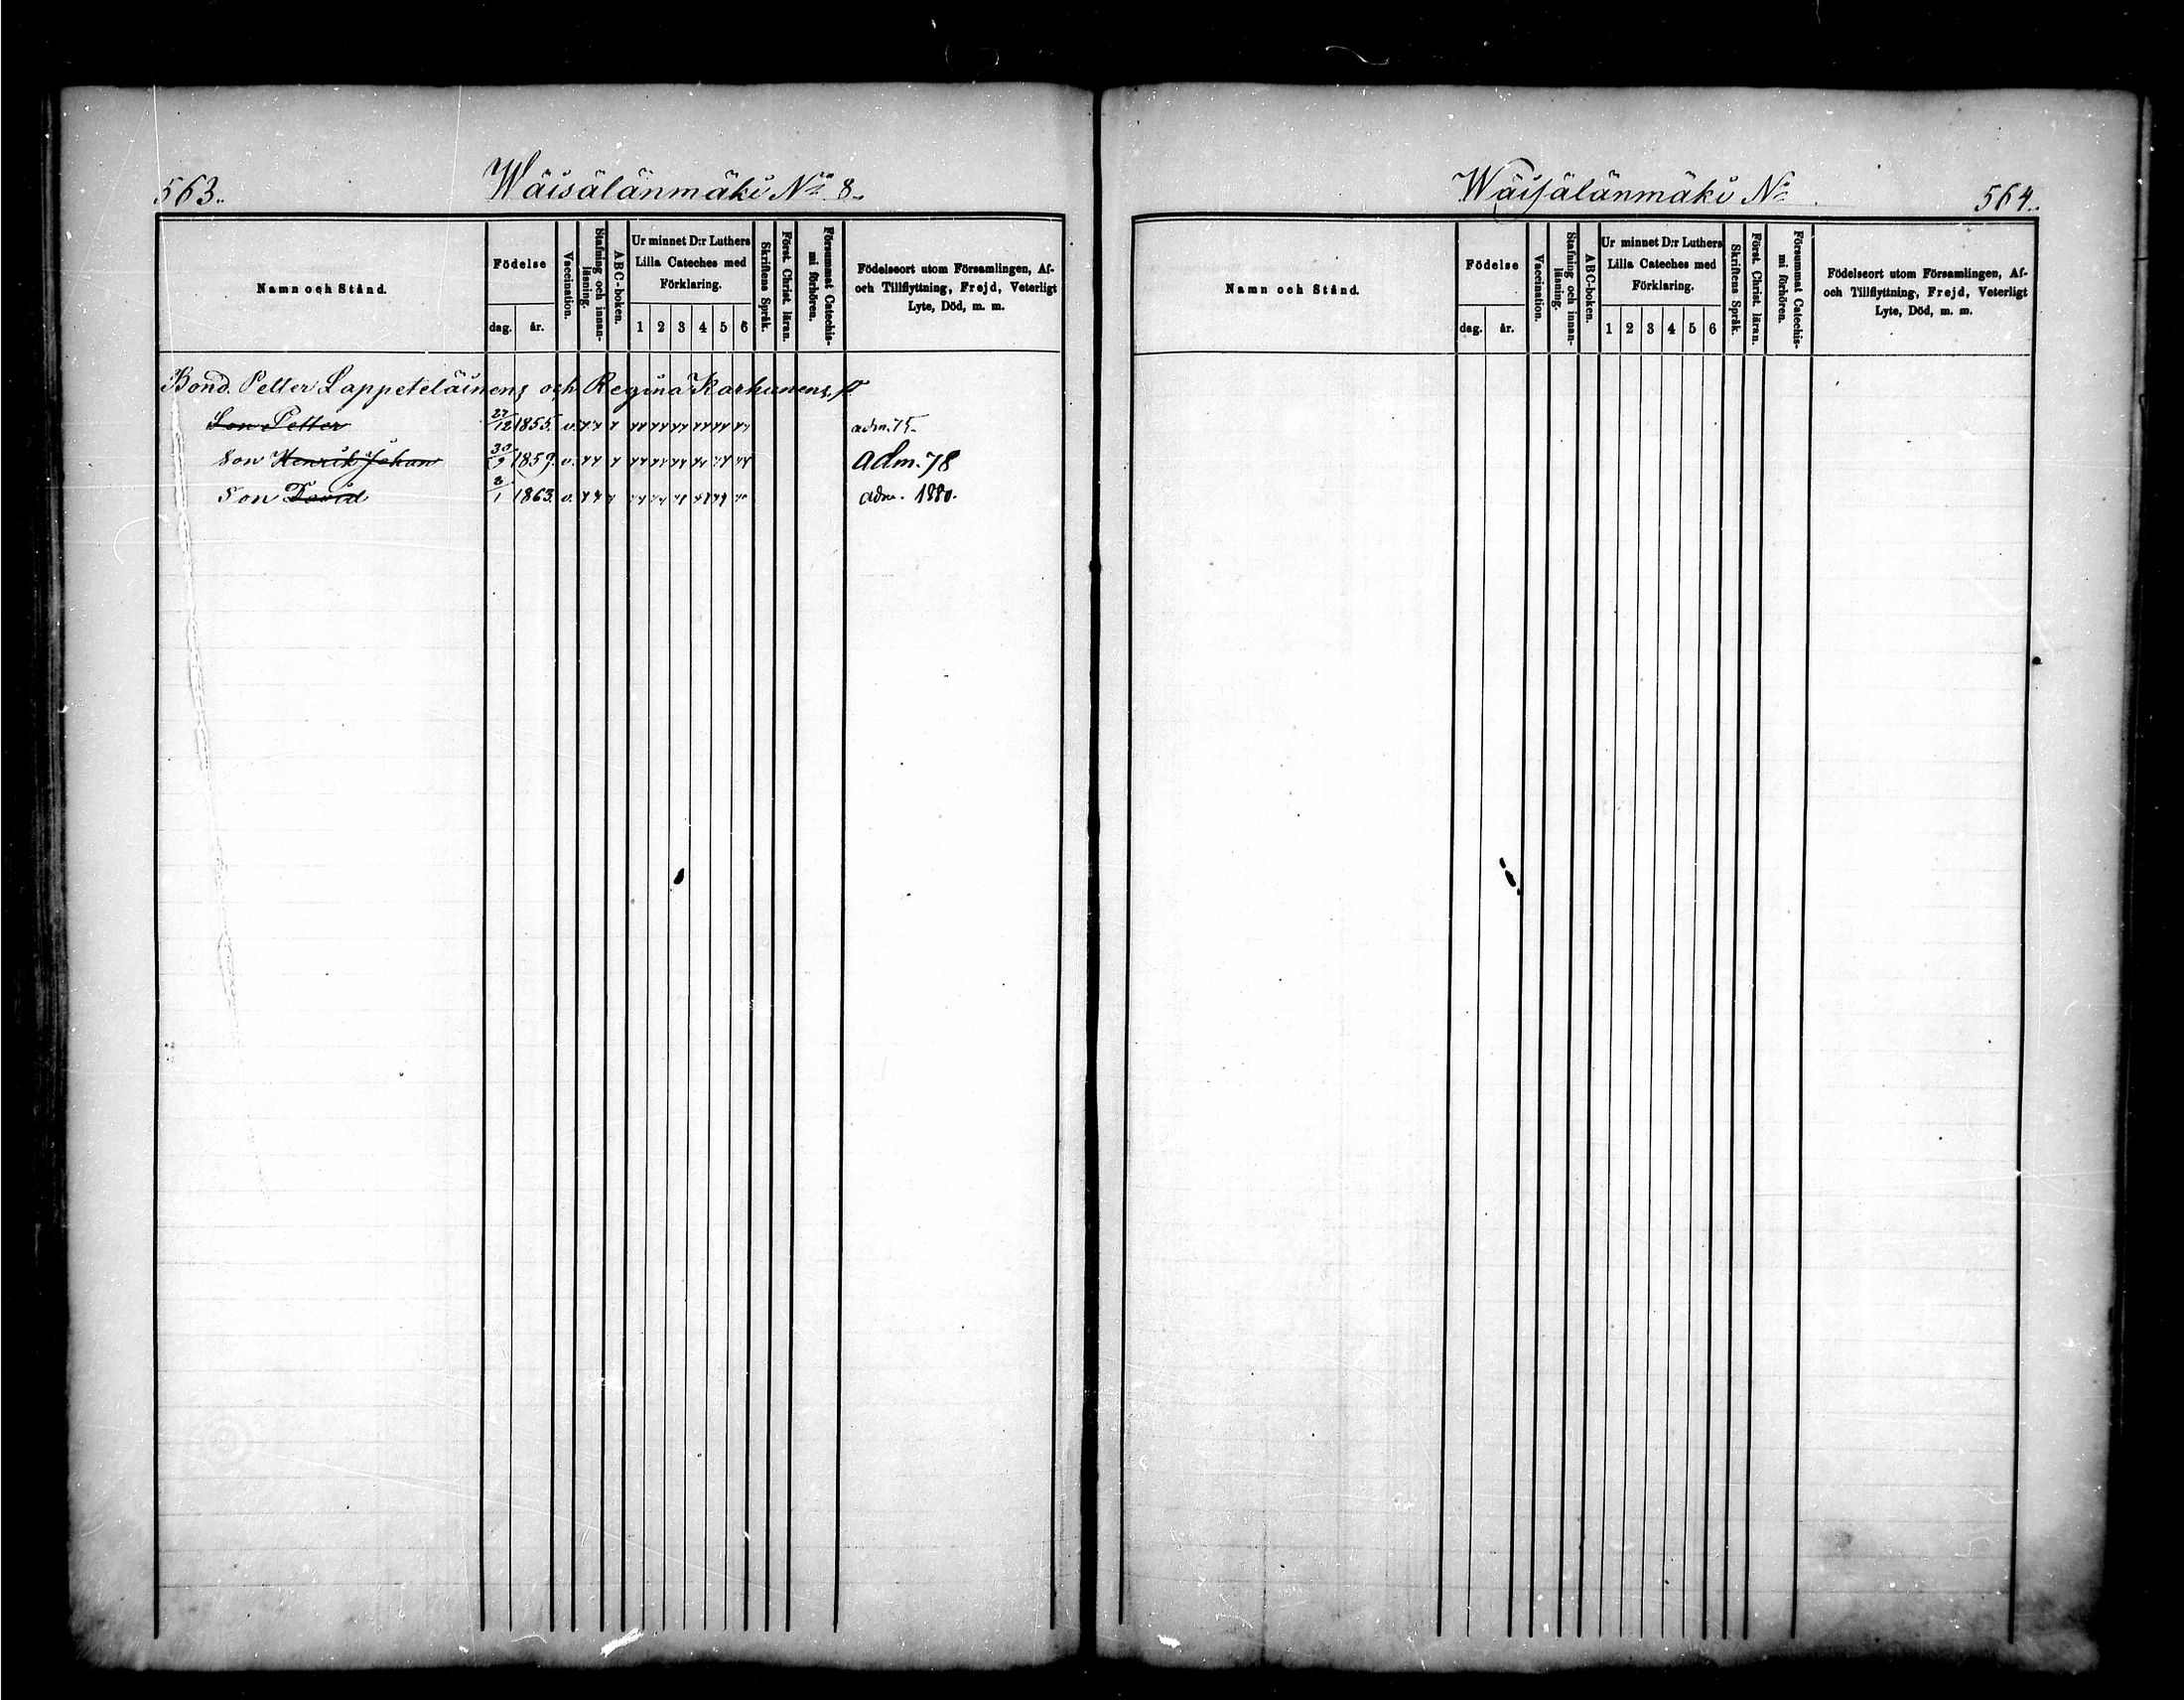 563.
Wäisälänmäki No 8.
Namn och Stånd.
Födelse
dag. år.
Vaccination.
Stafning och innan-
läsning.
ABC-boken.
Ur minnet D:r Luthers
Lilla Cateches med
Förklaring.
1 2 3 4 5 6
Skriftens Språk.
Först. Christ. läran.
Försummat Catechis-
mi förhören.
Födelseort utom Församlingen, Af-
och Tillflyttning, Frejd, Veterligt
Lyte, Död, m. m.
Bond. Petter Lappeteläinens och Regina Karhunens
Son Petter 27/12 1855. v. adm. 75.
Son Henrik Johan 30/9 1859. v. adm. 78
Son David 8/1 1863. v. adm. 1880.
Wäisälänmäki No
564.
Namn och Stånd.
Födelse
dag. år.
Vaccination.
Stafning och innan-
läsning.
ABC-boken.
Ur minnet D:r Luthers
Lilla Cateches med
Förklaring.
1 2 3 4 5 6
Skriftens Språk.
Först. Christ. läran.
Försummat Catechis-
mi förhören.
Födelseort utom Församlingen, Af-
och Tillflyttning, Frejd, Veterligt
Lyte, Död, m. m.